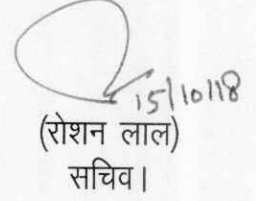 15/10/18
(रोशन लाल)
सचिव।